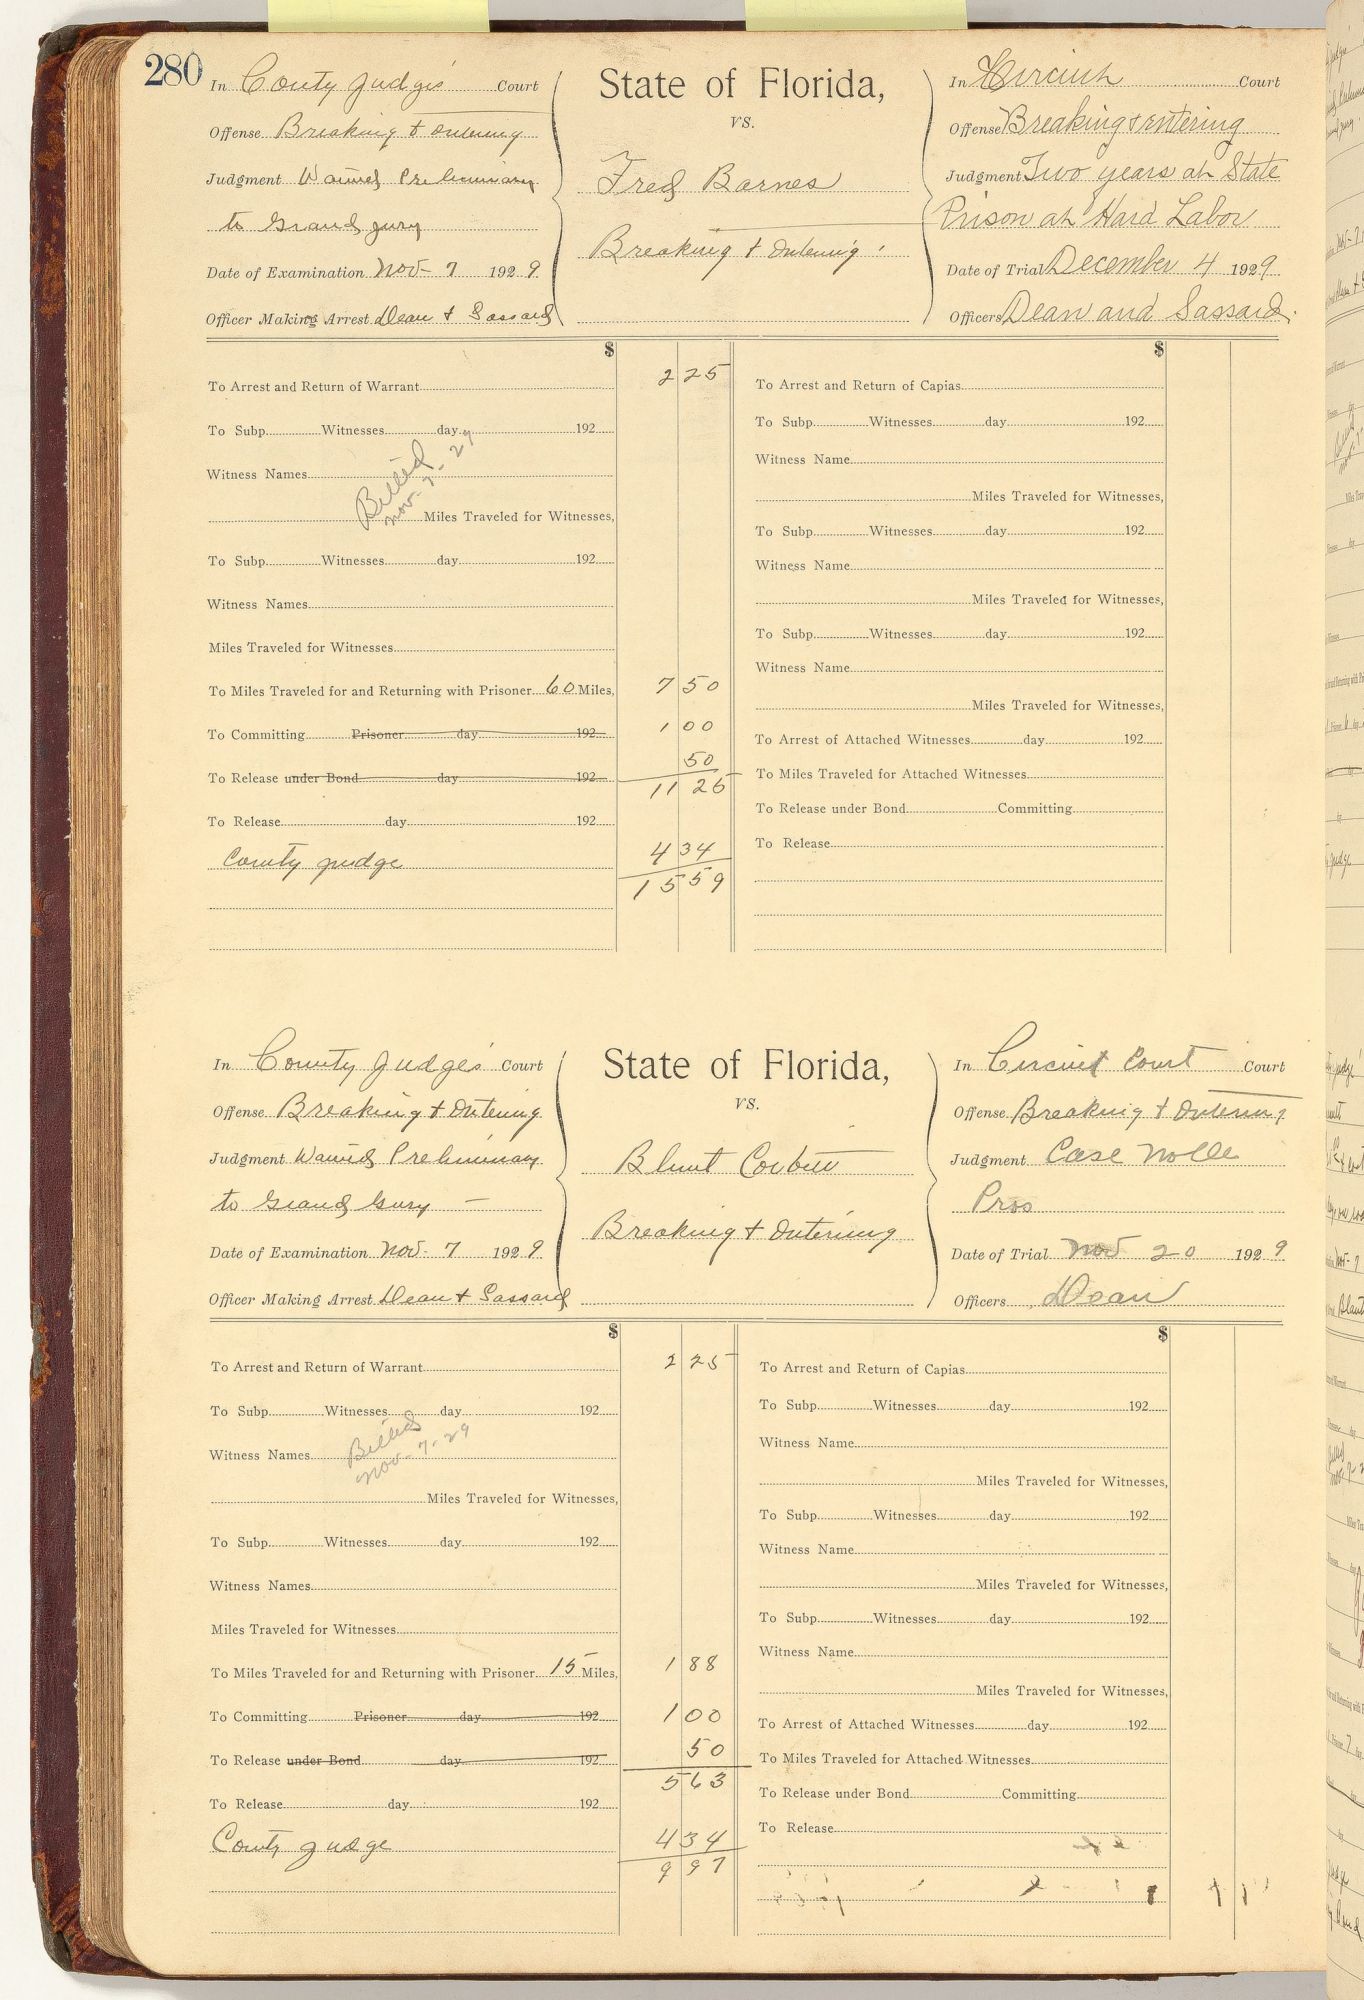 280
In County Judge's Court
Offense Breaking & Entering
Judgment Waived Preliminary
to Grand Jury
Date of Examination Nov- 7 1929
Officer Making Arrest Dean & Sassard
State of Florida,
vs.
Fred Barnes
Breaking & Entering
In Circuit Court
Offense Breaking & Entering
Judgment Two years at State
Prison at Hard Labor
Date of Trial December 4 1929
Officers Dean and Sassard.
$
To Arrest and Return of Warrant 2 25
To Subp. Witnesses day 192
Witness Names
Billed
Nov-7-29
Miles Traveled for Witnesses,
To Subp. Witnesses day 192
Witness Names
Miles Traveled for Witnesses
To Miles Traveled for and Returning with Prisoner 60 Miles, 7 50
To Committing Prisoner day 192 1 00
50
To Release under Bond day 192
11 25
To Release day 192
County Judge 4 34
15 59
$
To Arrest and Return of Capias
To Subp. Witnesses day 192
Witness Name
Miles Traveled for Witnesses,
To Subp. Witnesses day 192
Witness Name
Miles Traveled for Witnesses,
To Subp. Witnesses day 192
Witness Name
Miles Traveled for Witnesses,
To Arrest of Attached Witnesses day 192
To Miles Traveled for Attached Witnesses
To Release under Bond Committing
To Release
In County Judge's Court
Offense Breaking & Entering
Judgment Waived Preliminary
to Grand Jury —
Date of Examination Nov- 7 1929
Officer Making Arrest Dean & Sassard
State of Florida,
vs.
Blunt Corbett
Breaking & Entering
In Circuit Court Court
Offense Breaking & Entering
Judgment Case Nolle
Pros
Date of Trial Nov 20 1929
Officers Dean
$
To Arrest and Return of Warrant 2 25
To Subp. Witnesses day 192
Witness Names
Billed
Nov-7-29
Miles Traveled for Witnesses,
To Subp. Witnesses day 192
Witness Names
Miles Traveled for Witnesses
To Miles Traveled for and Returning with Prisoner 15 Miles, 1 88
To Committing Prisoner day 192 1 00
To Release under Bond day 192 50
5 63
To Release day 192
County Judge 4 34
9 97
$
To Arrest and Return of Capias
To Subp. Witnesses day 192
Witness Name
Miles Traveled for Witnesses,
To Subp. Witnesses day 192
Witness Name
Miles Traveled for Witnesses,
To Subp. Witnesses day 192
Witness Name
Miles Traveled for Witnesses,
To Arrest of Attached Witnesses day 192
To Miles Traveled for Attached Witnesses
To Release under Bond Committing
To Release